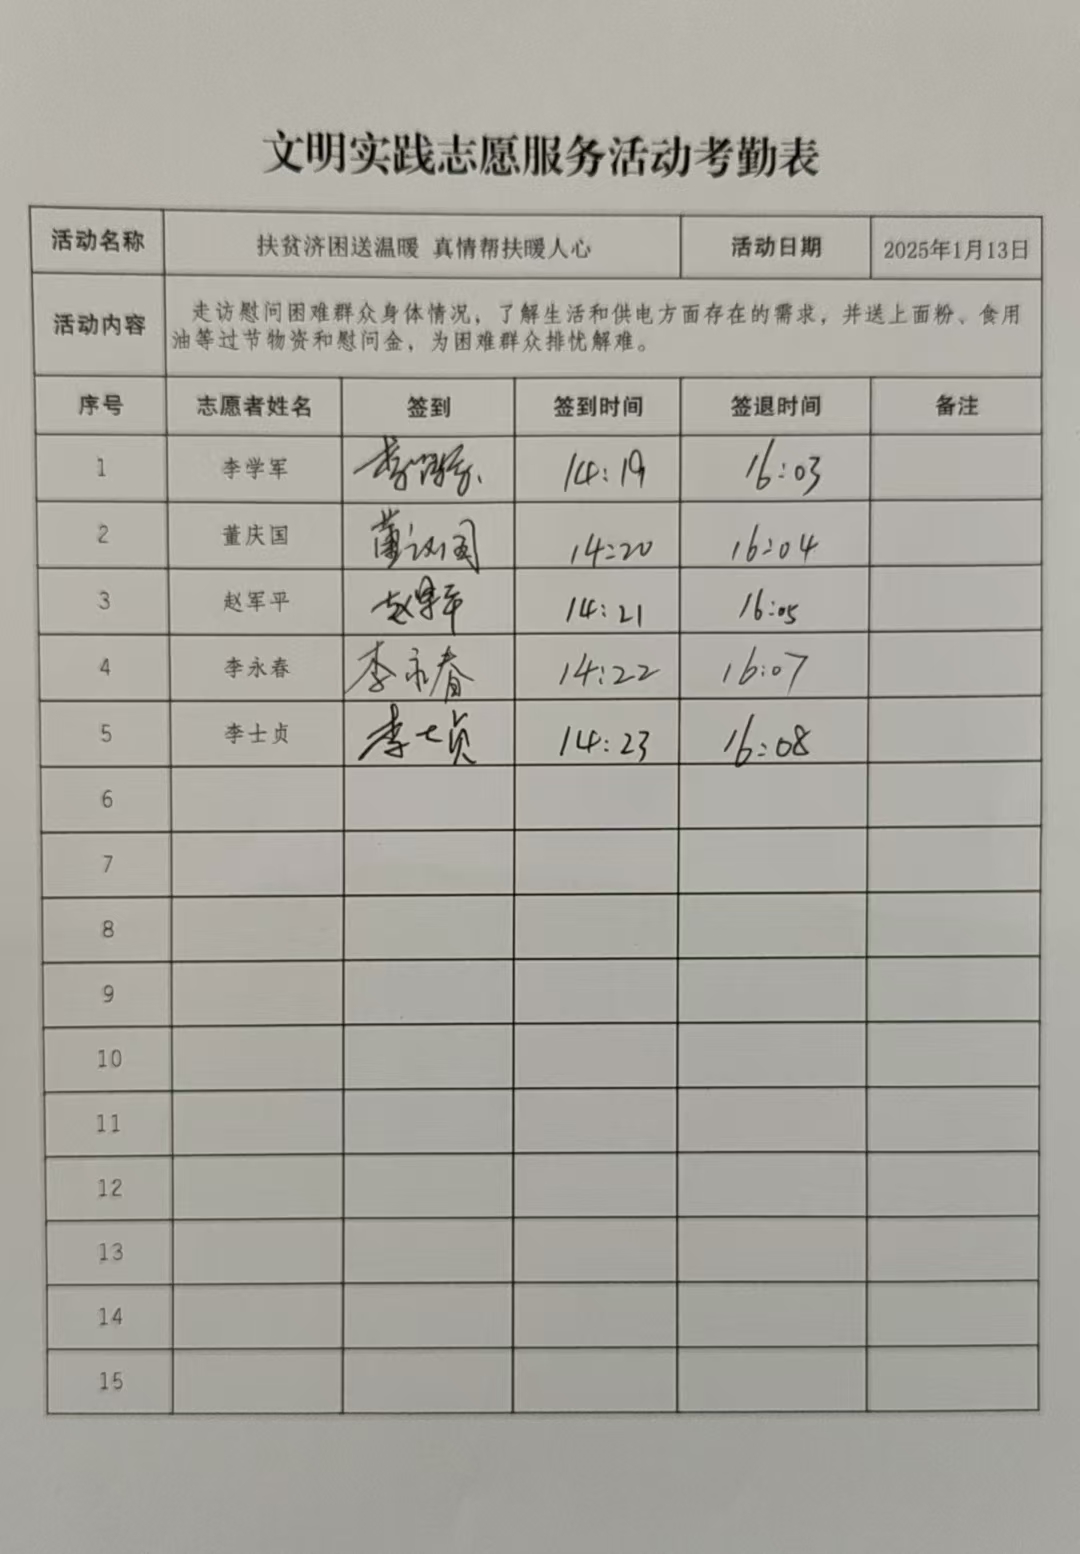 文明实践志愿服务活动考勤表
活动名称 扶贫济困送温暖 真情帮扶暖人心 活动日期 2025年1月13日
活动内容 走访慰问困难群众身体情况，了解生活和供电方面存在的需求，并送上面粉、食用
油等过节物资和慰问金，为困难群众排忧解难。
序号 志愿者姓名 签到 签到时间 签退时间 备注
1 李学军 14:19 16:03
2 董庆国 董庆国 14:20 16:04
3 赵军平 赵军平 14:21 16:05
4 李永春 李永春 14:22 16:07
5 李士贞 李士贞 14:23 16:08
6
7
8
9
10
11
12
13
14
15